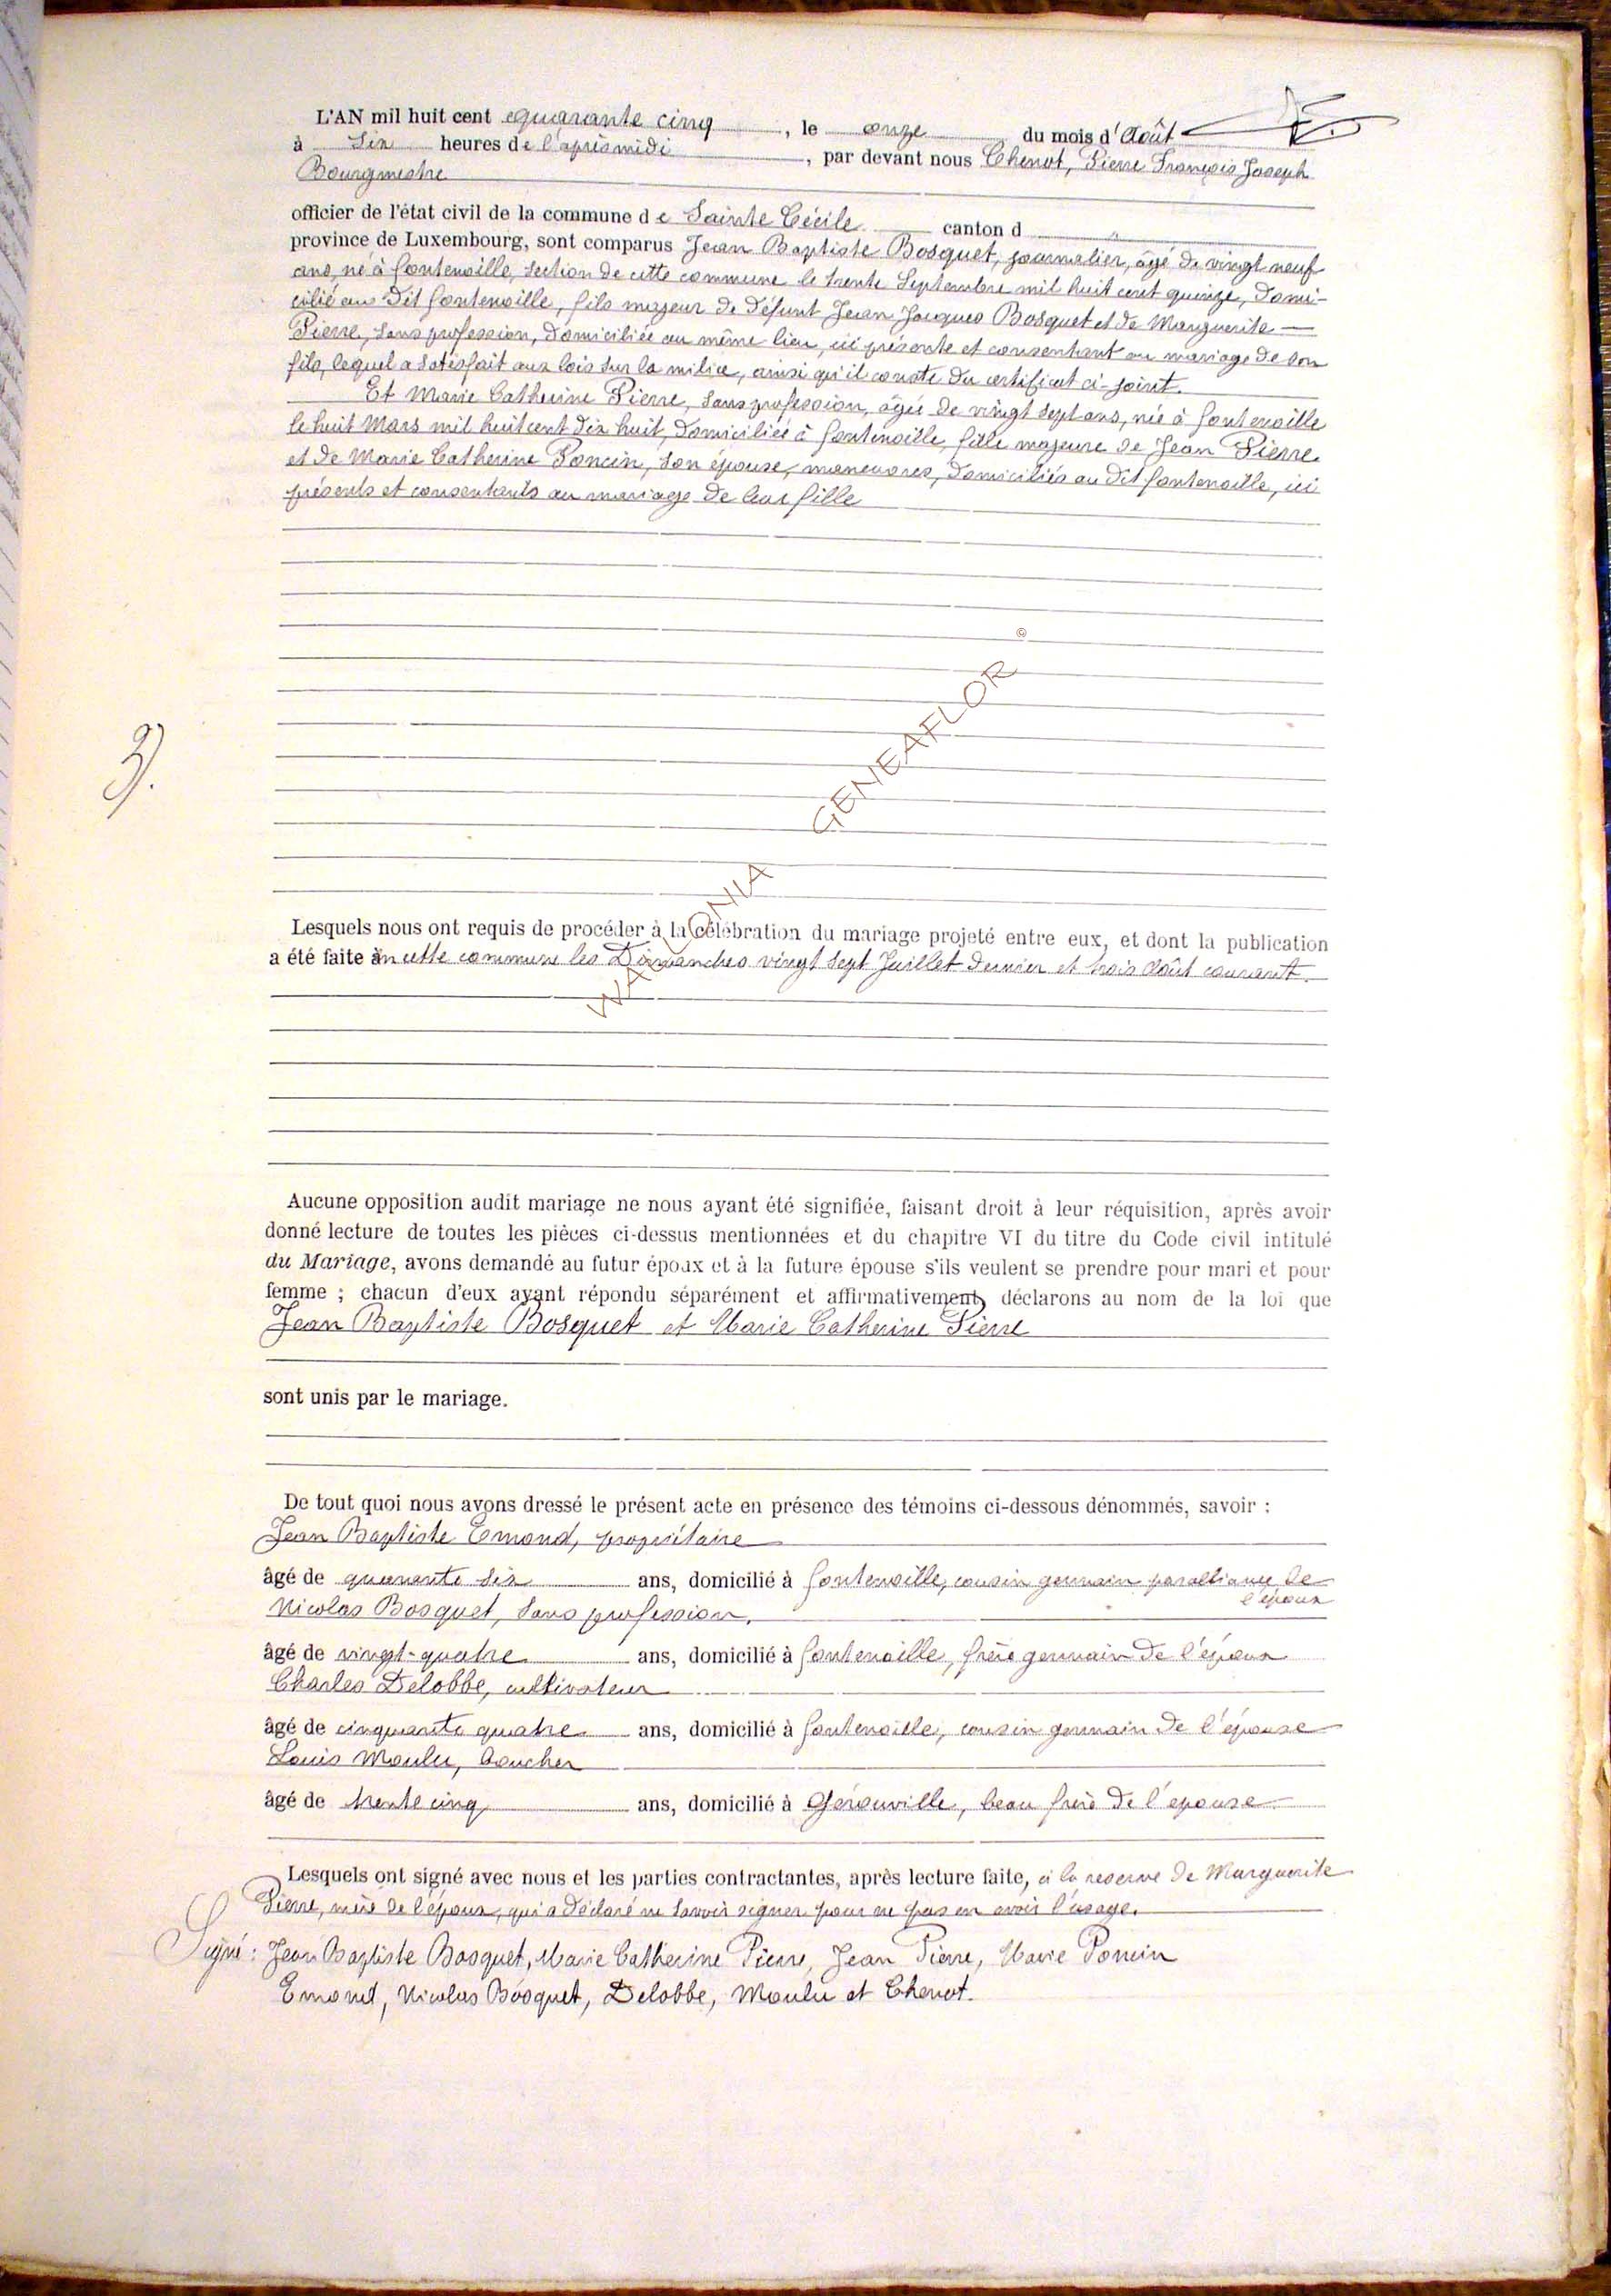 L'AN mil huit cent quarante cinq, le onze du mois d'Août
à six heures de l'après midi, par devant nous Chenot, Pierre François Joseph
Bourgmestre
officier de l'état civil de la commune de Sainte Cécile canton d
province de Luxembourg, sont comparus Jean Baptiste Bosquet, journalier, âgé de vingt neuf
ans, né à fontenoille, section de cette commune le trente Septembre mil huit cent quinze, domi-
cilié au dit fontenoille, fils majeur de défunt Jean Jacques Bosquet et de Marguerite —
Pierre, sans profession, domiciliée au même lieu, ici présente et consentant au mariage de son
fils, lequel a satisfait aux lois sur la milice, ainsi qu'il conste du certificat ci-joint.
Et Marie Catherine Pierre, sans profession, âgée de vingt sept ans, née à fontenoille
le huit Mars mil huit cent dix huit, domiciliée à fontenoille, fille majeure de Jean Pierre
et de Marie Catherine Poncin, son épouse, manœuvres, domiciliés au dit fontenoille, ici
présents et consentants au mariage de leur fille
3).
WALLONIA GENEAFLOR ©
Lesquels nous ont requis de procéder à la célébration du mariage projeté entre eux, et dont la publication
a été faite en cette commune les Dimanches vingt sept Juillet dernier et trois Août courant.
Aucune opposition audit mariage ne nous ayant été signifiée, faisant droit à leur réquisition, après avoir
donné lecture de toutes les pièces ci-dessus mentionnées et du chapitre VI du titre du Code civil intitulé
du Mariage, avons demandé au futur époux et à la future épouse s'ils veulent se prendre pour mari et pour
femme ; chacun d'eux ayant répondu séparément et affirmativement, déclarons au nom de la loi que
Jean Baptiste Bosquet et Marie Catherine Pierre
sont unis par le mariage.
De tout quoi nous avons dressé le présent acte en présence des témoins ci-dessous dénommés, savoir :
Jean Baptiste Emond, propriétaire
âgé de quarante six ans, domicilié à fontenoille, cousin germain par alliance de
l'époux
Nicolas Bosquet, sans profession,
âgé de vingt-quatre ans, domicilié à fontenoille, frère germain de l'époux
Charles Delobbe, cultivateur
âgé de cinquante quatre ans, domicilié à fontenoille, cousin germain de l'épouse
Louis Moulu, boucher
âgé de trente cinq ans, domicilié à Gérouville, beau frère de l'epouse
Lesquels ont signé avec nous et les parties contractantes, après lecture faite, à la reserve de Marguerite
Pierre, mère de l'époux, qui a déclaré ne savoir signer pour ne pas en avoir l'usage.
Signé : Jean Baptiste Bosquet, Marie Catherine Pierre, Jean Pierre, Marie Poncin
Emond, Nicolas Bosquet, Delobbe, Moulu et Chenot.